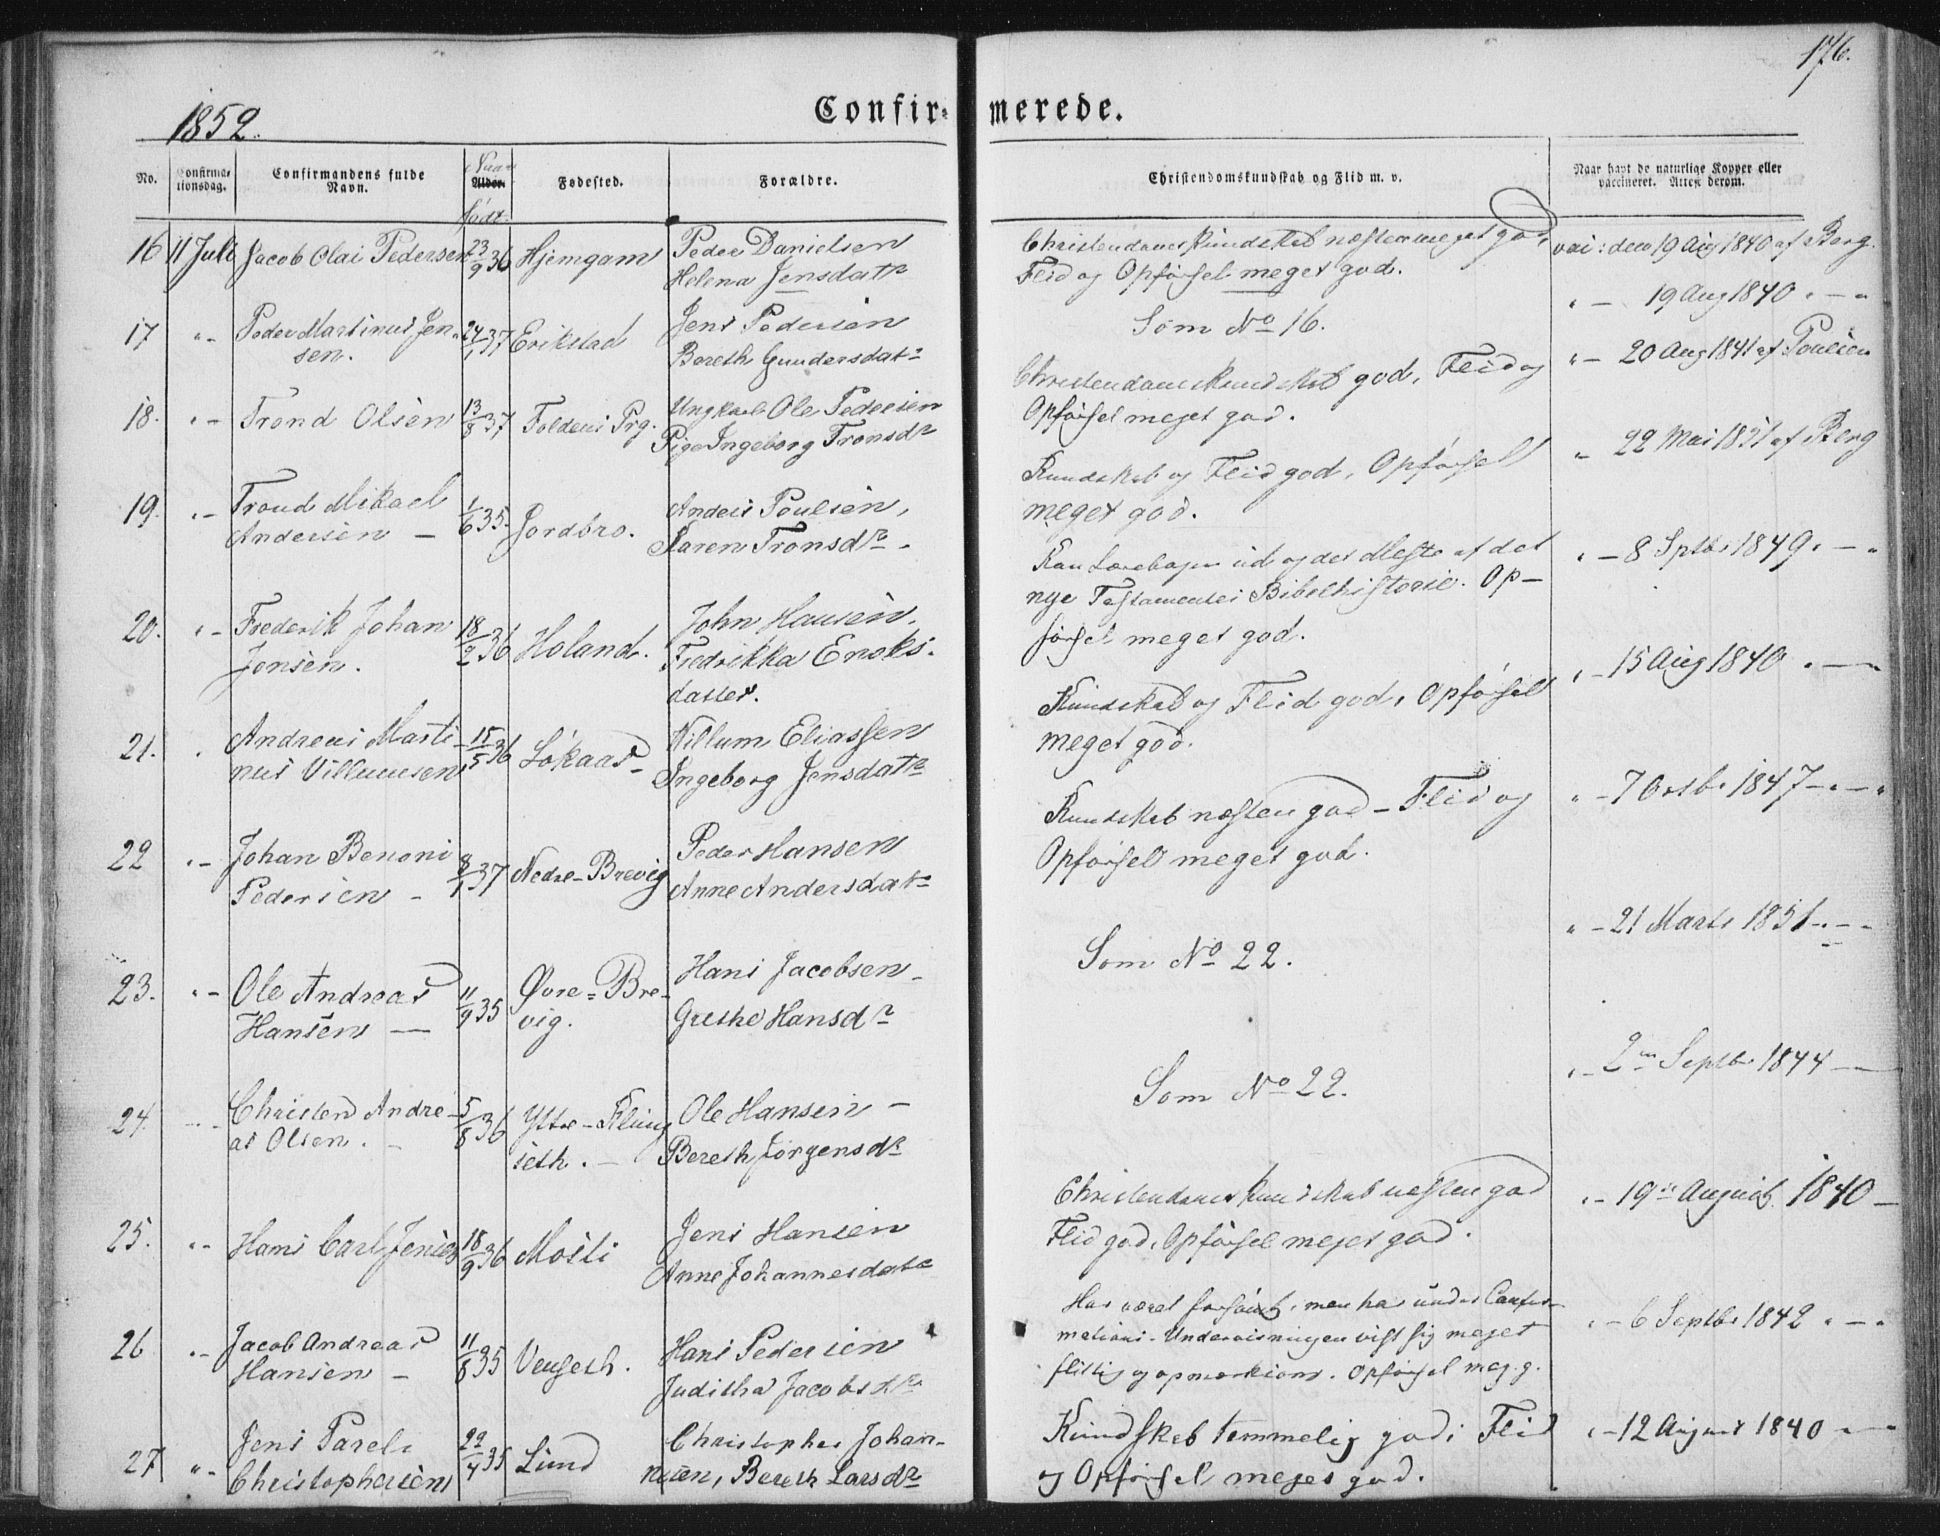 176.
1852.
Confirmerede.
No.
Confirmationsdag.
Confirmandens fulde Navn.
Naar
Alder.
født.
Fødested.
Forældre.
Christendomskundskab og Flid m. v.
Naar havt de naturlige Kopper eller vaccineret. Attest derom.
16 11 Juli Jacob Olai Pedersen 23/9 36 Hjemgam Peder Danielsen
Helena Jensdatr
Christendomskundskab næsten meget god,
Flid og Opførsel meget god.
vai: den 19 Aug 1840 af Berg.
17 "- Peder Martinus Jen-
sen. 24/1 37 Erikstad Jens Pedersen
Bereth Gundersdatr
Som No 16.
"- 19 Aug 1840 "-"
18. "- Trond Olsen 13/8 37 Foldens Prg. Ungkarl Ole Pedersen
Pige Ingeborg Tronsdr
Christendomskundskab god, Flid og
Opførsel meget god.
"- 20 Aug 1841 af Poulsen
19. "- Trond Mikael
Andersen - 1/6 35. Jordbro. Anders Poulsen,
Karen Tronsdr -
Kundskab og Flid god, Opførsel
meget god.
" 22 Mai 1851 af Berg
20. "- Frederik Johan
Jensen. 18/2 36 Holand. John Hansen,
Fredrikka Enoks-
datter.
Kan Lærebogen ud og det Meste af det
nye Testamentes Bibelhistorie. Op-
førsel meget god.
"- 8 Septbr 1849 "-"
21. " Andreas Marti-
nus Villumsen 15/5 36 Løkaas - Villum Eliassen
Ingeborg Jensdatr
Kundskab og Flid god, Opførsel
meget god.
"- 15 Aug 1840 "-
22 "- Johan Benoni
Pedersen - 8/1 37 Nedre-Brevig Peder Hansen
Anne Andersdatr
Kundskab næsten god - Flid og
Opførsel meget god.
"- 7 Octbr 1847 -"-"
23. "- Ole Andreas
Hansen - 11/9 35 Øvre-Bre-
vig. Hans Jacobsen -
Grethe Hansdr
Som No 22.
"- 21 Marts 1851 "-"
24. "- Christen Andre-
as Olsen. - 5/8 36 Ytre-
seth. - Ole Hansen -
Bereth Jørgensdr
Som No 22.
"- 2den Septbr 1844 -
25. "- Hans Carl Jensen 18/9 36 Mosti Jens Hansen
Anne Johannesdatr
Christendomskundskab næsten god
Flid god, Opførsel meget god.
"- 19de August 1840 -
26 "- Jacob Andreas
Hansen - 11/8 35 Venseth. Hans Pedersen
Juditha Jacobsdr
Har været forsømt, men har under Confir-
mations-Underviisningen viist sig meget
flittig og opmærksom. Opførsel meg. g.
"- 6 Septbr 1842 "-"
27 "- Jens Pareli
Christophersen 22/4 35 Lund Christopher Johan-
nesen, Bereth Larsdr
Kundskab temmelig god; Flid
og Opførsel meget god.
"- 12 August 1840 "-"